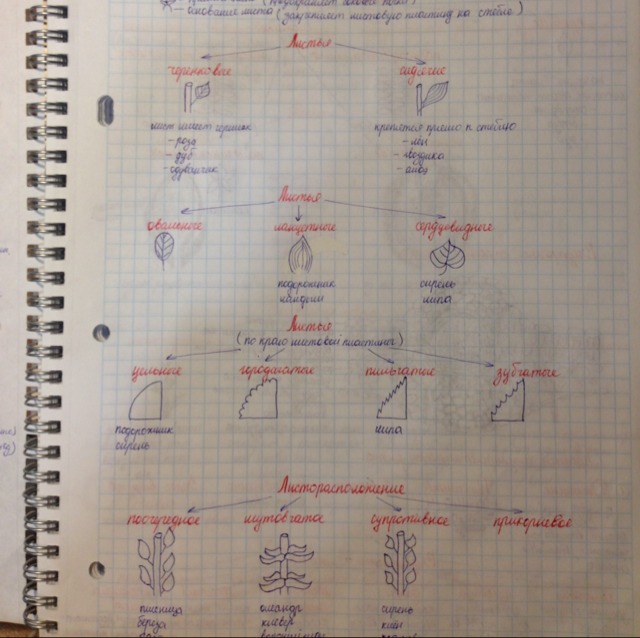 основание листа (закрепляет листовую пластинку на стебле)
Листья
черешковые сидячие
лист имеет черешок крепятся прямо к стеблю
- роза - лен
- дуб - гвоздика
- одуванчик - алоэ
Листья
овальные ланцетные сердцевидные
подорожник сирень
ландыш липа
Листья
(по краю листовой пластинки)
цельные городчатые пильчатые зубчатые
подорожник липа
сирень
Листорасположение
поочередное мутовчатое супротивное прикорневое
пшеница олеандр сирень
береза клевер клен